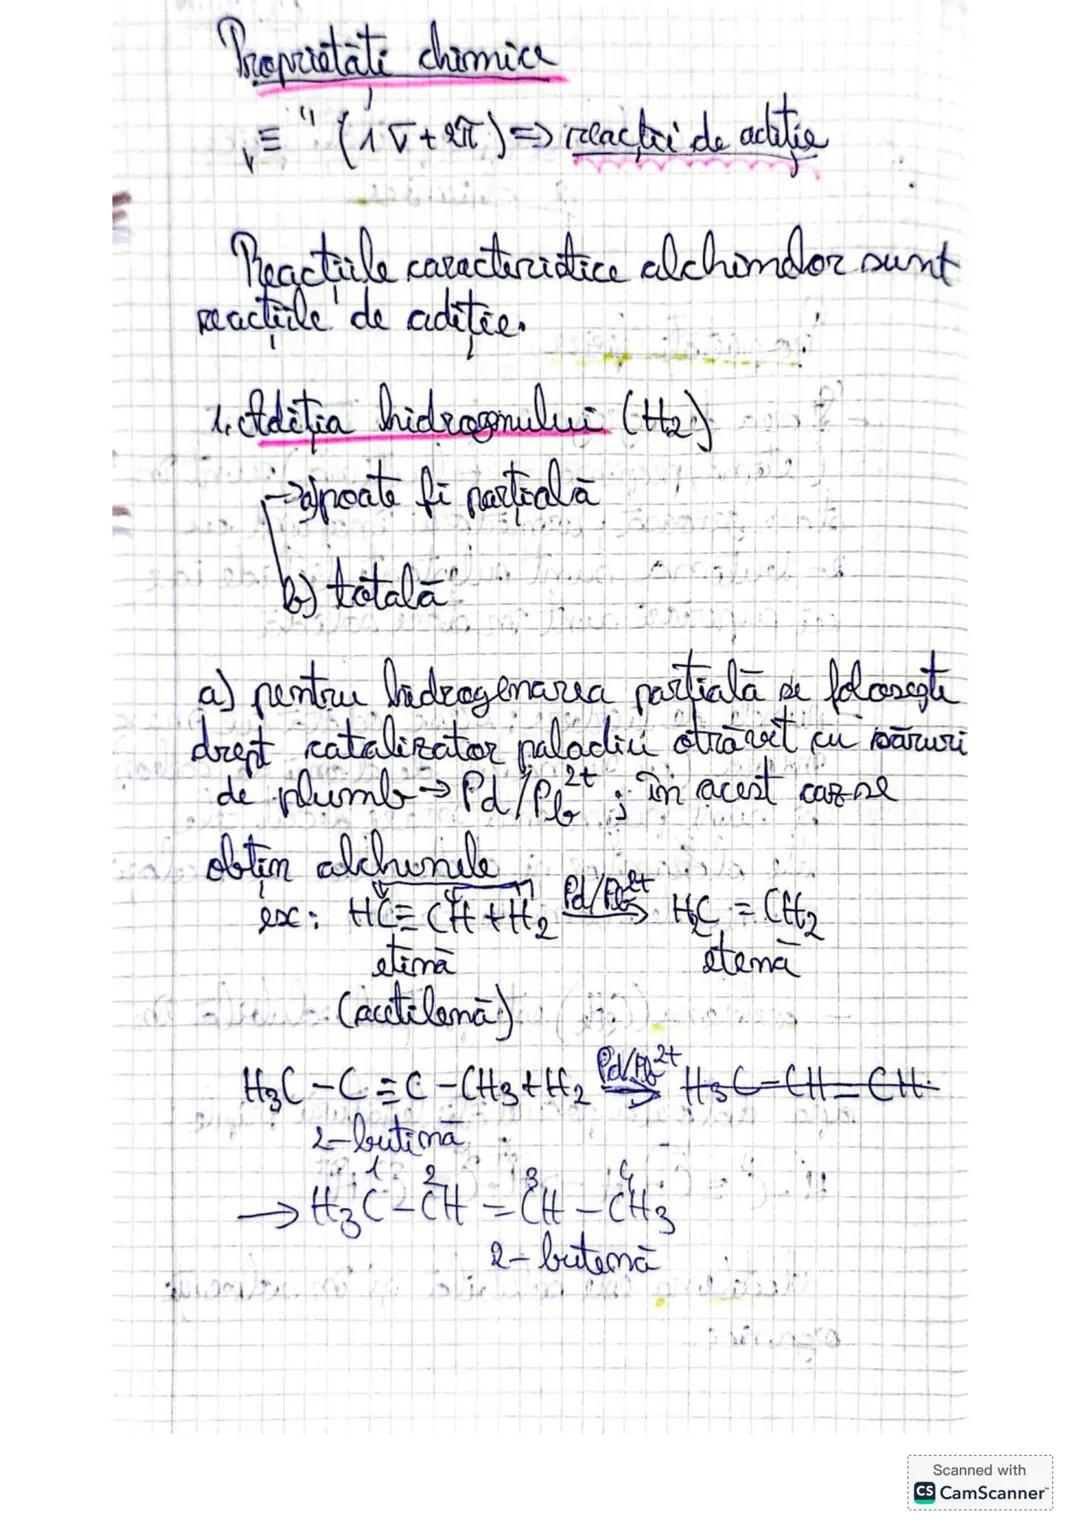 Proprietăți chimice
„≡" (1σ+2π) => reacții de adiție
Reacțiile caracteristice alchinelor sunt
reacțiile de adiție.
1. Adiția hidrogenului (H2)
→ a) poate fi parțială
b) totală
a) pentru hidrogenarea parțială se folosește
drept catalizator paladiu otrăvit cu săruri
de plumb → Pd/Pb2+ ; în acest caz se
obțin alchenele
ex: HC≡CH + H2 Pd/Pb2+ → H2C = CH2
etină etenă
(acetilenă)
H3C – C ≡ C – CH3 + H2 Pd/Pb2+ → H3C – CH = CH
2-butină
1 2 3 4
→ H3C – CH = CH – CH3
2-butenă
Scanned with
CS CamScanner